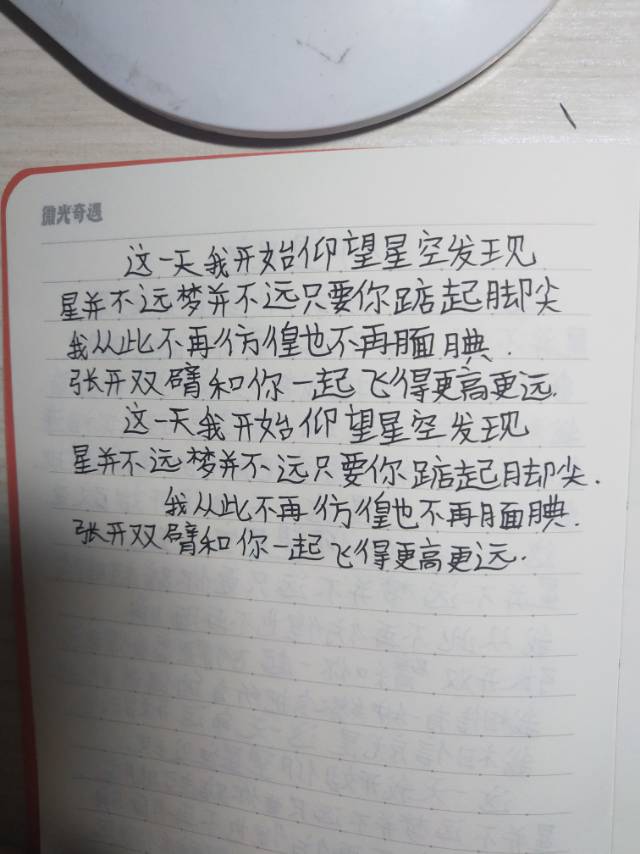 微光奇遇
这一天我开始仰望星空发现
星并不远梦并不远只要你踮起脚尖
我从此不再彷徨也不再腼腆.
张开双臂和你一起飞得更高更远.
这一天我开始仰望星空发现
星并不远梦并不远只要你踮起脚尖.
我从此不再彷徨也不再腼腆.
张开双臂和你一起飞得更高更远.